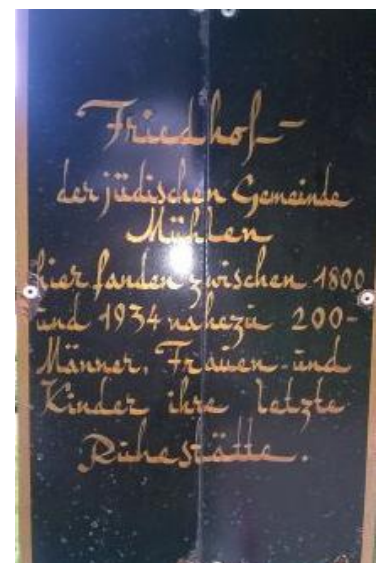 Friedhof-
der jüdischen Gemeinde
Mühlen
hier fanden zwischen 1800
und 1934 nahezu 200-
Männer, Frauen und
Kinder ihre letzte
Ruhestätte.